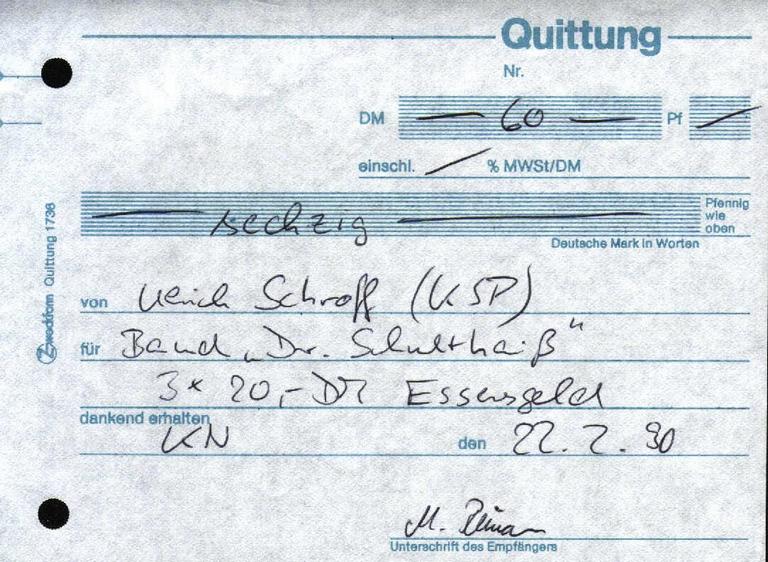 Quittung
Nr.
DM — 60 — Pf /
einschl. / % MWSt/DM
— sechzig — Pfennig wie oben
Deutsche Mark in Worten
von Ulrich Schroff (KSP)
für Band „Dr. Schultheiß"
3 x 20,- DM Essensgeld
dankend erhalten
KN den 22. 2. 90
M.
Unterschrift des Empfängers
Zweckform Quittung 1736